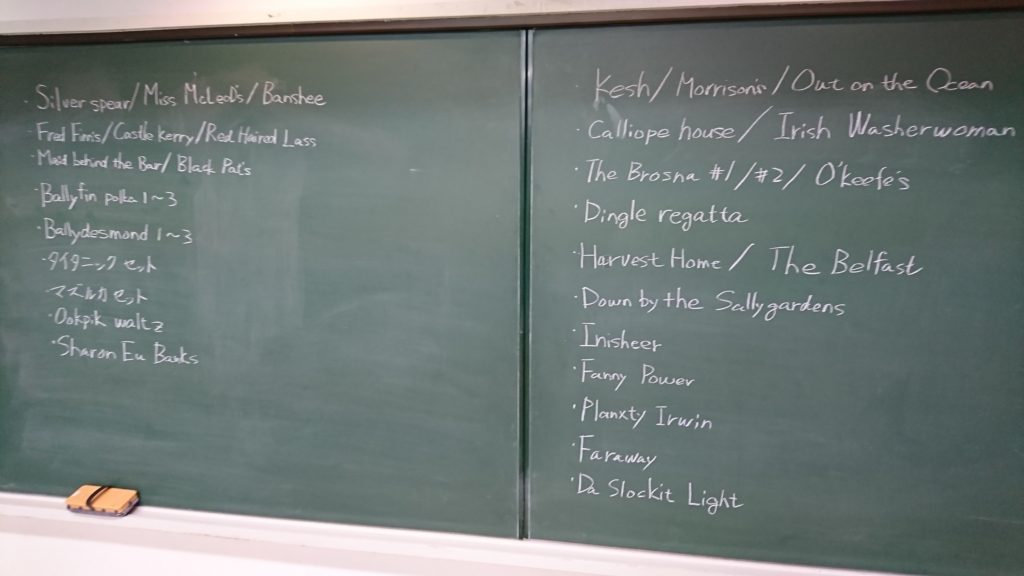 · Silver spear/Miss McLeod's/Banshee
· Fred Finn's/Castle kerry/Red Haired Lass
· Maid behind the Bar/Black Pat's
· Ballyfin polka 1~3
· Ballydesmond 1~3
· タイタニックセット
マズルカセット
· Ookpik waltz
· Sharon Eu Banks
Kesh/Morrison's/Out on the Ocean
· Calliope house/Irish Washerwoman
· The Brosna #1/#2/O'keefe's
· Dingle regatta
· Harvest Home/The Belfast
· Down by the Sallygardens
· Inisheer
· Fanny Power
· Planxty Irwin
· Faraway
· Da Slockit Light